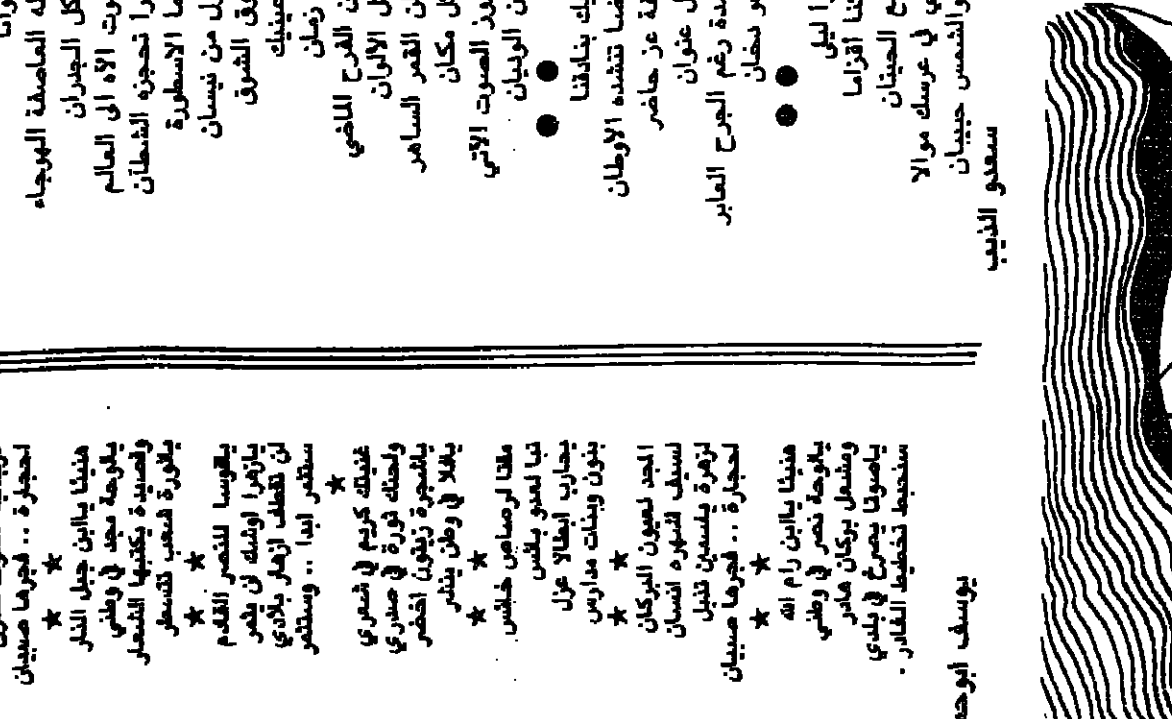 العاصفة الهوجاء
كل الجدران
الآه الى العالم
تحجزه الشطآن
الاسطورة
من نيسان
الشوق
عينيك
زمان
الفرح الماضي
الالوان
القمر الساهر
كل مكان
الصوت الآتي
الوديان
بنادقنا
تنشده الاوطان
عز حاضر
عنوان
رغم الجرح العابر
نخان
ليلى
اقزاما
الحيتان
في عرسك موالا
والشمس حبيبان
سعدو الذيب
لحجارة .. فجرها صبيان
هنيئا ياابن جبل النار
يالوحة مجد في وطني
وقصيدة يكتبها الشعار
ياثورة شعب تتسطر
ياقوسا للنصر القادم
يازهرا اوشك ان يثمر
لن تقطف ازهار بلادي
ستثمر ابدا .. وستثمر
غنيتك كريم في شعري
ولحنتك ثورة في صدري
ياشجرة زيتون اخضر
يافلا في وطن ينثر
مقتا لرصاص خانس
تبا لعدو يائس
يحارب ابطالا عزل
بنون وبنات مدارس
المجد لعيون البركان
لسيف اشهره انسان
لزهرة ياسمين تذبل
لحجارة .. فجرها صبيان
هنيئا ياابن رام الله
يالوحة نصر في وطني
ومشعل بركان هادر
ياصوتا يصرخ في بلدي
سنحبط تخطيط الغادر .
يوسف